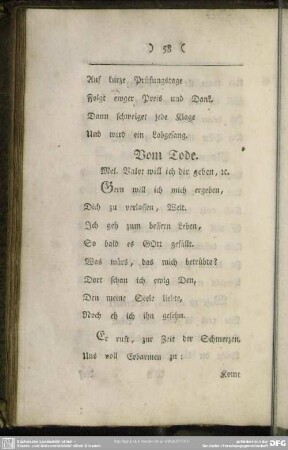 ) 58 (
Auf kurze Prüfungstage
Folgt ewger Preis und Dank.
Dann schweiget jede Klage
Und wird ein Lobgesang.
Vom Tode.
Mel. Valet will ich dir geben, ꝛc.
Gern will ich mich ergeben,
Dich zu verlassen, Welt.
Ich geh zum bessern Leben,
So bald es GOtt gefällt.
Was wärs, das mich betrübte?
Dort schau ich ewig Den,
Den meine Seele liebte,
Noch eh ich ihn gesehn.
Er ruft, zur Zeit der Schmerzen,
Uns voll Erbarmen zu:
Komt